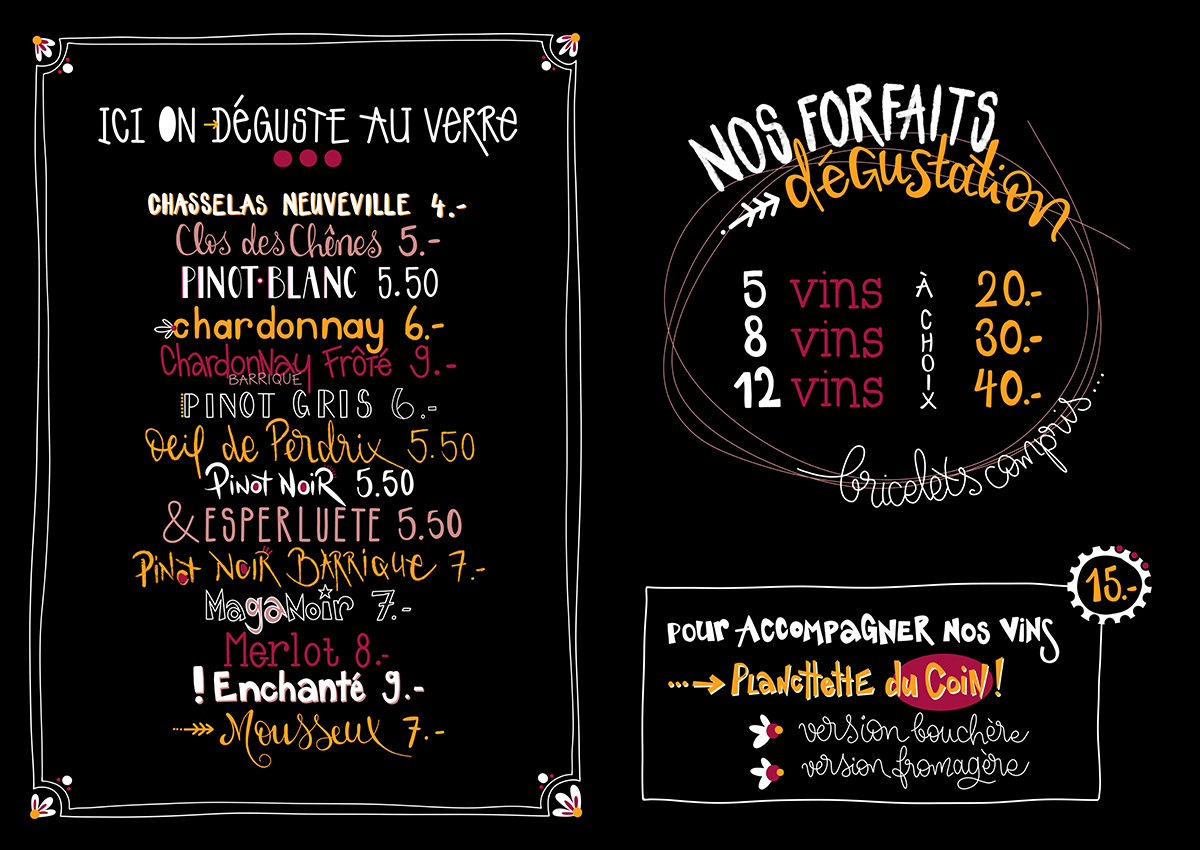 ICI ON DÉGUSTE AU VERRE
CHASSELAS NEUVEVILLE 4.-
Clos des Chênes 5.-
PINOT·BLANC 5.50
chardonnay 6.-
Chardonnay Frôté 9.-
BARRIQUE
PINOT GRIS 6.-
Oeil de Perdrix 5.50
Pinot Noir 5.50
& ESPERLUETE 5.50
Pinot Noir Barrique 7.-
MagaNoir 7.-
Merlot 8.-
! Enchanté 9.-
Mousseux 7.-
NOS FORFAITS
déGustation
5 vins À CHOIX 20.-
8 vins 30.-
12 vins 40.-
bricelets compris...
15.-
POUR ACCOMPAGNER NOS VINS
PLANCHETTE du COIN!
version bouchère
version fromagère